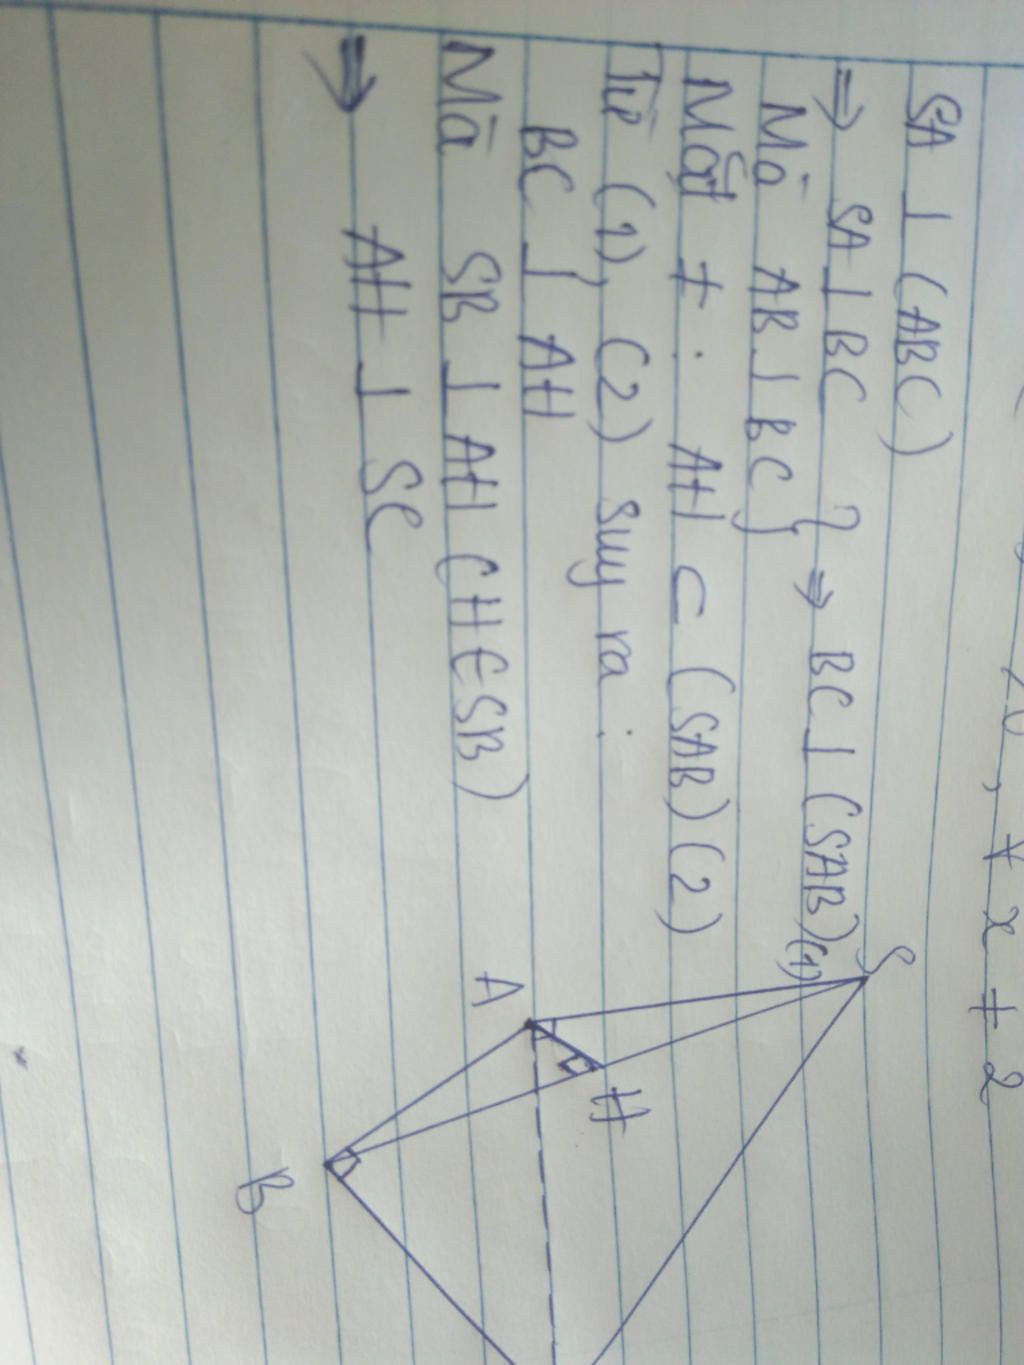 , ∀ x ≠ 2
SA ⊥ (ABC)
⇒ SA ⊥ BC
Mà AB ⊥ BC } ⇒ BC ⊥ (SAB) (1)
Mặt ≠ : AH ⊂ (SAB) (2)
Từ (1), (2) suy ra :
BC ⊥ AH
Mà SB ⊥ AH (H ∈ SB)
⇒ AH ⊥ SC
S
A
H
B